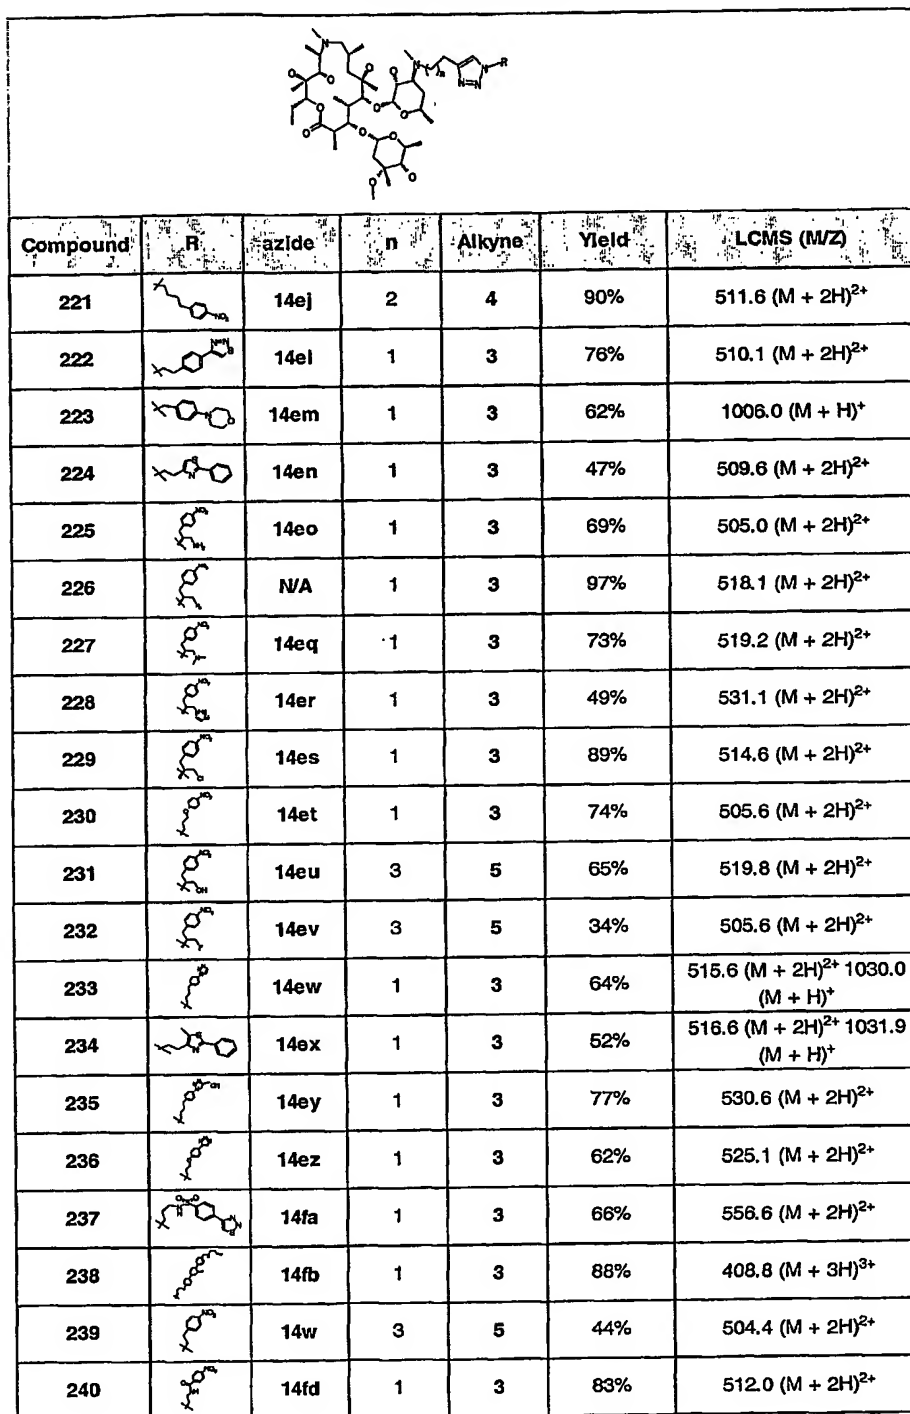 Compound R azide n Alkyne Yield LCMS (M/Z)
221 14ej 2 4 90% 511.6 (M + 2H)2+
222 14el 1 3 76% 510.1 (M + 2H)2+
223 14em 1 3 62% 1006.0 (M + H)+
224 14en 1 3 47% 509.6 (M + 2H)2+
225 14eo 1 3 69% 505.0 (M + 2H)2+
226 N/A 1 3 97% 518.1 (M + 2H)2+
227 14eq 1 3 73% 519.2 (M + 2H)2+
228 14er 1 3 49% 531.1 (M + 2H)2+
229 14es 1 3 89% 514.6 (M + 2H)2+
230 14et 1 3 74% 505.6 (M + 2H)2+
231 14eu 3 5 65% 519.8 (M + 2H)2+
232 14ev 3 5 34% 505.6 (M + 2H)2+
233 14ew 1 3 64% 515.6 (M + 2H)2+ 1030.0
(M + H)+
234 14ex 1 3 52% 516.6 (M + 2H)2+ 1031.9
(M + H)+
235 14ey 1 3 77% 530.6 (M + 2H)2+
236 14ez 1 3 62% 525.1 (M + 2H)2+
237 14fa 1 3 66% 556.6 (M + 2H)2+
238 14fb 1 3 88% 408.8 (M + 3H)3+
239 14w 3 5 44% 504.4 (M + 2H)2+
240 14fd 1 3 83% 512.0 (M + 2H)2+